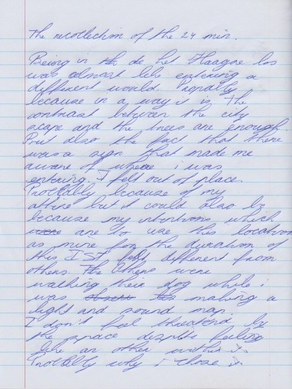 The recollection of the 24 min.
Being in the de het Haagse bos
was almost like entering a
different world. Partially
because in a way is in the
contrast between the city
scape and the trees are enough.
But also the fact that there
was a sign that made me
aware of where i was
entering. I felt out of place.
Probably because of my
attire but it could also be
because my intentions which
are to use the location
as mine for the duration of
this IST felt different from
others. The others were
walking their dog while i
was making a
light and sound map.
I don't feel threatened by
the space despite feeling
like an other within it.
Probably why i chose it.